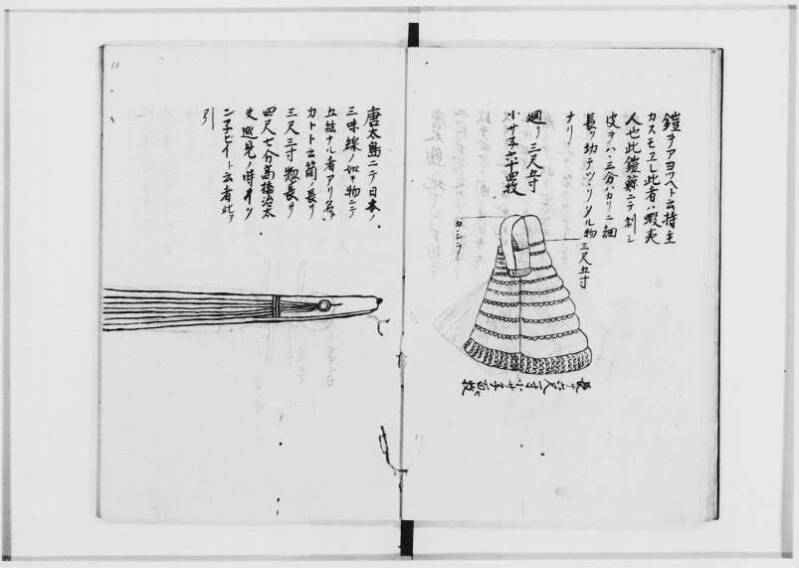 鎧ヲアヨツヘト云持主
カスモヱレ此者ハ蝦夷
人也此鎧鯨ニテ制シ
皮ヲハ三分ハカリニ細
長ク切テツヽリタル物
ナリ
三尺五寸
廻リ三尺五寸
小サネ六十四枚
カシラ
長サ六尺一寸小サネ百枚
唐太島ニテ日本ノ
三味線ノ如キ物ニテ
五絃ナル者アリ名ヲ
カトト云筒ノ長サ
三尺三寸惣長サ
四尺七分高橋治太
夫巡見ノ時オツ
シ子ビイト云者此ヲ
引
11